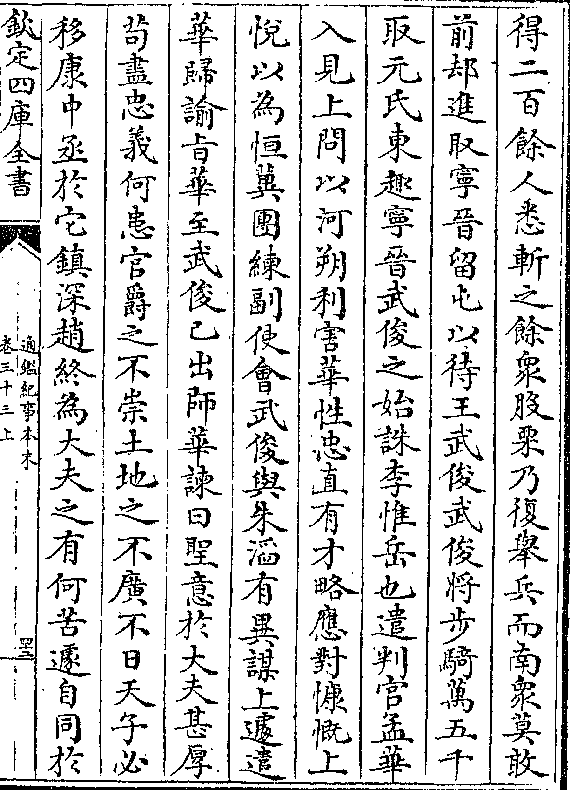 得二百餘人悉斬之餘衆股栗乃復舉兵而南衆莫敢
前却進取寧晉留屯以待王武俊武俊將步騎萬五千
取元氏東趣寧晉武俊之始誅李惟岳也遣判官孟華
入見上問以河朔利害華性忠直有才略應對慷慨上
悅以為恒冀團練副使會武俊與朱滔有異謀上遽遣
華歸諭旨華至武俊已出師華諫曰聖意於大夫甚厚
茍盡忠義何患官爵之不崇土地之不廣不日天子必
移康中丞於它鎮深趙終為大夫之有何苦遽自同於
欽定四庫全書
通鑑紀事本末
卷三十三上
罒五